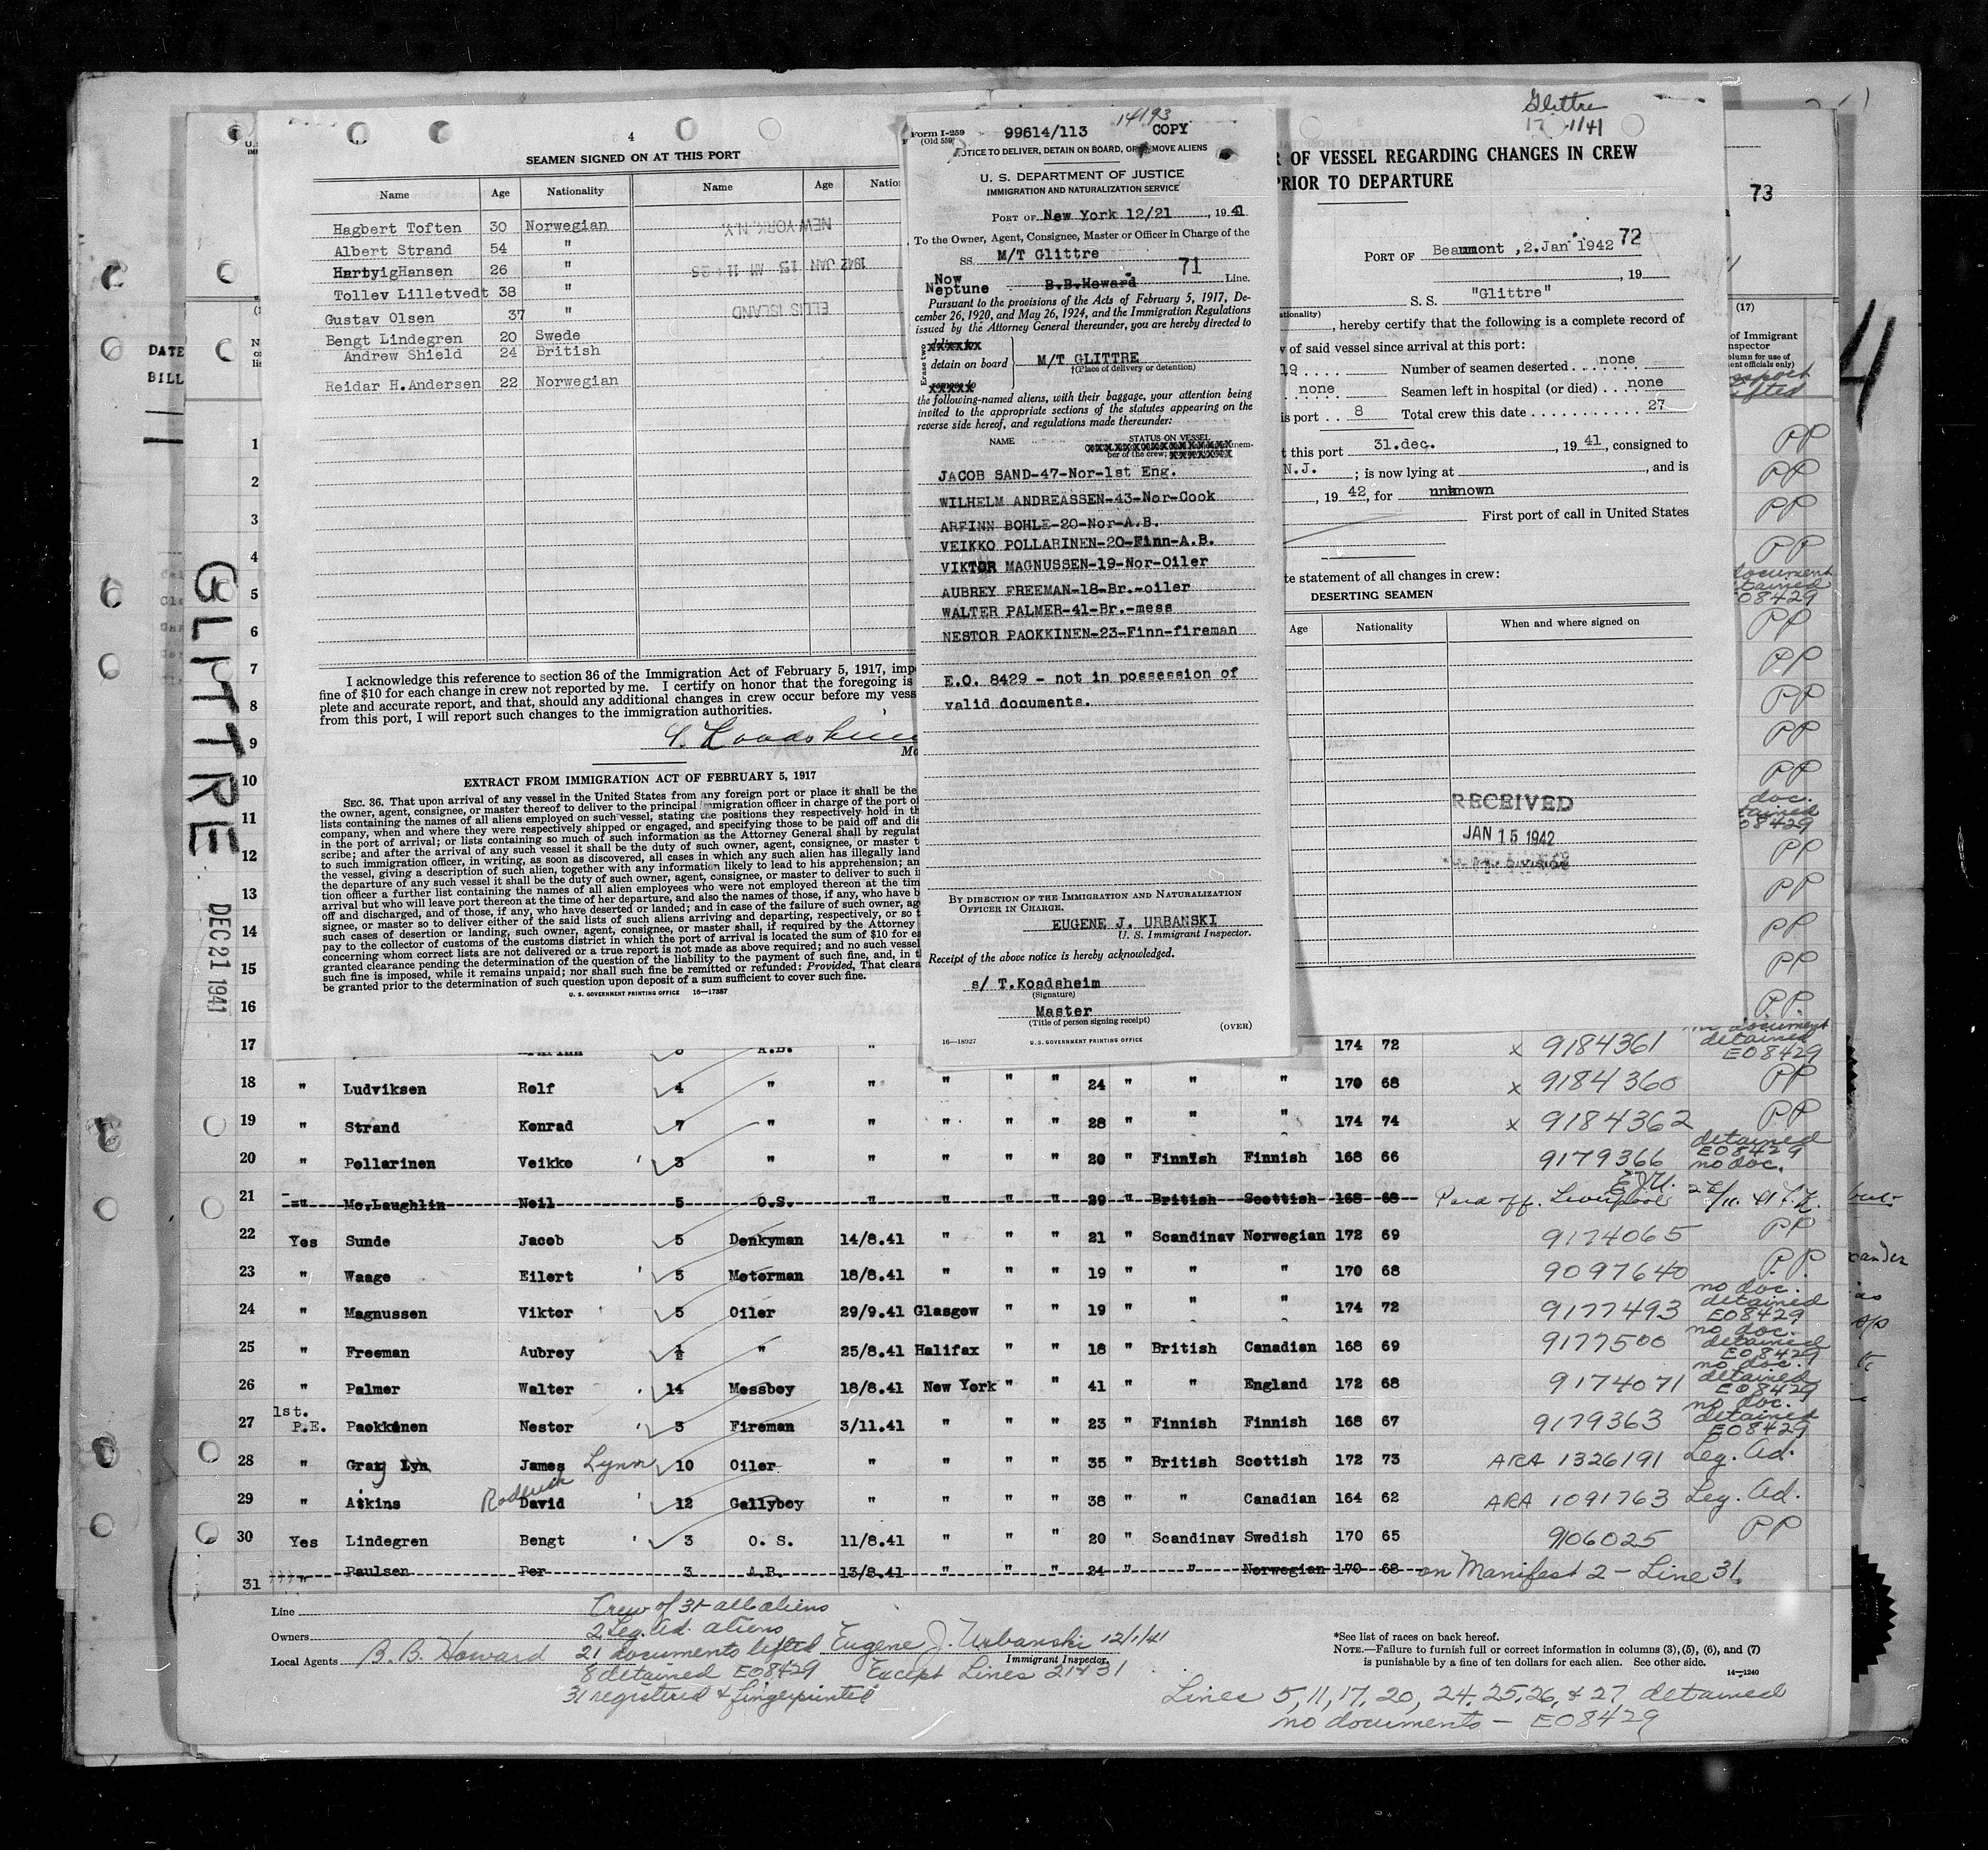 4
SEAMEN SIGNED ON AT THIS PORT
Name Age Nationality Name Age
Hagbert Toften 30 Norwegian
Albert Strand 54 "
HartvigHansen 26 "
Tollev Lilletvedt 38 "
Gustav Olsen 37
Bengt Lindegren 20 Swede
Andrew Shield 24 British
Reidar H.Andersen 22 Norwegian
NEW YORK, N.Y.
1942 JAN 13 AM 11
ELLIS ISLAND
I acknowledge this reference to section 36 of the Immigration Act of February 5, 1917,
fine of $10 for each change in crew not reported by me. I certify on honor that the foregoing is
plete and accurate report, and that, should any additional changes in crew occur before my
from this port, I will report such changes to the immigration authorities.
EXTRACT FROM IMMIGRATION ACT OF FEBRUARY 5, 1917
SEC. 36. That upon arrival of any vessel in the United States from any foreign port or place it shall be the
the owner, agent, consignee, or master thereof to deliver to the principal immigration officer in charge of the port of
lists containing the names of all aliens employed on such vessel, stating the positions they respectively hold in
company, when and where they were respectively shipped or engaged, and specifying those to be paid off and
in the port of arrival; or lists containing so much of such information as the Attorney General shall by
scribe; and after the arrival of any such vessel it shall be the duty of such owner, agent, consignee, or master
to such immigration officer, in writing, as soon as discovered, all cases in which any such alien has illegally
the vessel, giving a description of such alien, together with any information likely to lead to his apprehension;
the departure of any such vessel it shall be the duty of such owner, agent, consignee, or master to deliver to such
tion officer a further list containing the names of all alien employees who were not employed thereon at the
arrival but who will leave port thereon at the time of her departure, and also the names of those, if any, who have
off and discharged, and of those, if any, who have deserted or landed; and in case of the failure of such owner,
signee, or master so to deliver either of the said lists of such aliens arriving and departing, respectively, or so
such cases of desertion or landing, such owner, agent, consignee, or master shall, if required by the Attorney
pay to the collector of customs of the customs district in which the port of arrival is located the sum of $10 for
concerning whom correct lists are not delivered or a true report is not made as above required; and no such vessel
granted clearance pending the determination of the question of the liability to the payment of such fine, and, in
such fine is imposed, while it remains unpaid; nor shall such fine be remitted or refunded: Provided, That
be granted prior to the determination of such question upon deposit of a sum sufficient to cover such fine.
U. S. GOVERNMENT PRINTING OFFICE 16—17387
14193
Form I-259
(Old 559)
99614/113 COPY
NOTICE TO DELIVER, DETAIN ON BOARD, OR REMOVE ALIENS
U. S. DEPARTMENT OF JUSTICE
IMMIGRATION AND NATURALIZATION SERVICE
PORT OF New York 12/21, 1941
To the Owner, Agent, Consignee, Master or Officer in Charge of the
SS. M/T Glittre
71
Now
Neptune B.B.Howard Line.
Pursuant to the provisions of the Acts of February 5, 1917, De-
cember 26, 1920, and May 26, 1924, and the Immigration Regulations
issued by the Attorney General thereunder, you are hereby directed to
Erase two
detain on board M/T GLITTRE
(Place of delivery or detention)
the following-named aliens, with their baggage, your attention being
invited to the appropriate sections of the statutes appearing on the
reverse side hereof, and regulations made thereunder:
NAME STATUS ON VESSEL
mem-
ber of the crew;
JACOB SAND-47-Nor-1st Eng.
WILHELM ANDREASSEN-43-Nor-Cook
ARFINN BOHLE-20-Nor-A.B.
VEIKKO POLLARINEN-20-Finn-A.B.
VIKTOR MAGNUSSEN-19-Nor-Oiler
AUBREY FREEMAN-18-Br.-oiler
WALTER PALMER-41-Br.-mess
NESTOR PAOKKINEN-23-Finn-fireman
E.O. 8429 - not in possession of
valid documents.
BY DIRECTION OF THE IMMIGRATION AND NATURALIZATION
OFFICER IN CHARGE.
EUGENE J. URBANSKI
U. S. Immigrant Inspector.
Receipt of the above notice is hereby acknowledged.
s/ T.Kosdsheim
(Signature)
Master
(Title of person signing receipt)
(OVER)
16—18927 U. S. GOVERNMENT PRINTING OFFICE
Glittre
OF VESSEL REGARDING CHANGES IN CREW
PRIOR TO DEPARTURE
PORT OF Beaumont ,2.Jan 1942 72
, 19
S. S. "Glittre"
, hereby certify that the following is a complete record of
of said vessel since arrival at this port:
19 Number of seamen deserted none
none Seamen left in hospital (or died) none
is port 8 Total crew this date 27
this port 31.dec., 1941, consigned to
N.J. ; is now lying at , and is
, 1942, for unknown
First port of call in United States
te statement of all changes in crew:
DESERTING SEAMEN
Age Nationality When and where signed on
RECEIVED
JAN 15 1942
73
(17)
of Immigrant
nspector
4
DATE
BILL
GLITTRE
DEC 21 1941
1
2
3
4
5
6
7
8
9
10
11
12
13
14
15
16
PP
PP
PP
PP
document
detained
08429
PP
PP
PP
PP
PP
doc.
detained
08429
PP
PP
PP
PP
P.P.
17 A.B. " 174 72 x 9184361 no document detained E08429
18 " Ludviksen Rolf 4 " " " " " 24 " " " 170 68 x 9184360 PP
19 " Strand Konrad 7 " " " " " 28 " " " 174 74 x 9184362 PP
20 " Pollarinen Veikko 3 " " " " " 20 " Finnish Finnish 168 66 9179366 detained E08429 no doc.
21 " Mc.Laughlin Neil 5 O.S. " " " " 29 " British Scottish 168 68 Paid off. Liverpool EJU.
22 Yes Sunde Jacob 5 Donkyman 14/8.41 " " " 21 " Scandinav Norwegian 172 69 9174065 PP
23 " Waage Eilert 5 Motorman 18/8.41 " " " 19 " " " 170 68 9097640 P.P.
24 " Magnussen Viktor 5 Oiler 29/9.41 Glasgow " " 19 " " " 174 72 9177493 no doc. detained E08429
25 " Freeman Aubrey ½ " 25/8.41 Halifax " " 18 " British Canadian 168 69 9177500 no doc. detained E08429
26 " Palmer Walter 14 Messboy 18/8.41 New York " " 41 " " England 172 68 9174071 no doc. detained E08429
27 1st. P.E. Paokkinen Nestor 3 Fireman 3/11.41 " " " 23 " Finnish Finnish 168 67 9179363 no doc. detained E08429
28 " Gray Lyn James Lynn 10 Oiler " " " " 35 " British Scottish 172 73 ARA 1326191 Leg. Ad.
29 " Atkins David 12 Gallyboy " " " " 38 " " Canadian 164 62 ARA 1091763 Leg. Ad.
30 Yes Lindegren Bengt 3 O. S. 11/8.41 " " " 20 " Scandinav Swedish 170 65 9106025 PP
31 " Paulsen Per 3 A.B. 13/8.41 " " " 24 " " Norwegian 170 68 on Manifest 2 - Line 31
Line
Owners
Local Agents B. B. Howard
Crew of 31 - all aliens
2 Leg. Ad. aliens
21 documents lifted
8 detained E08429
31 registered & fingerprinted
Eugene J. Urbanski
Immigrant Inspector.
Except Lines 21 & 31
*See list of races on back hereof.
NOTE.—Failure to furnish full or correct information in columns (3), (5), (6), and (7)
is punishable by a fine of ten dollars for each alien. See other side.
14—1240
Lines 5, 11, 17, 20, 24, 25, 26, & 27 detained
no documents - E08429